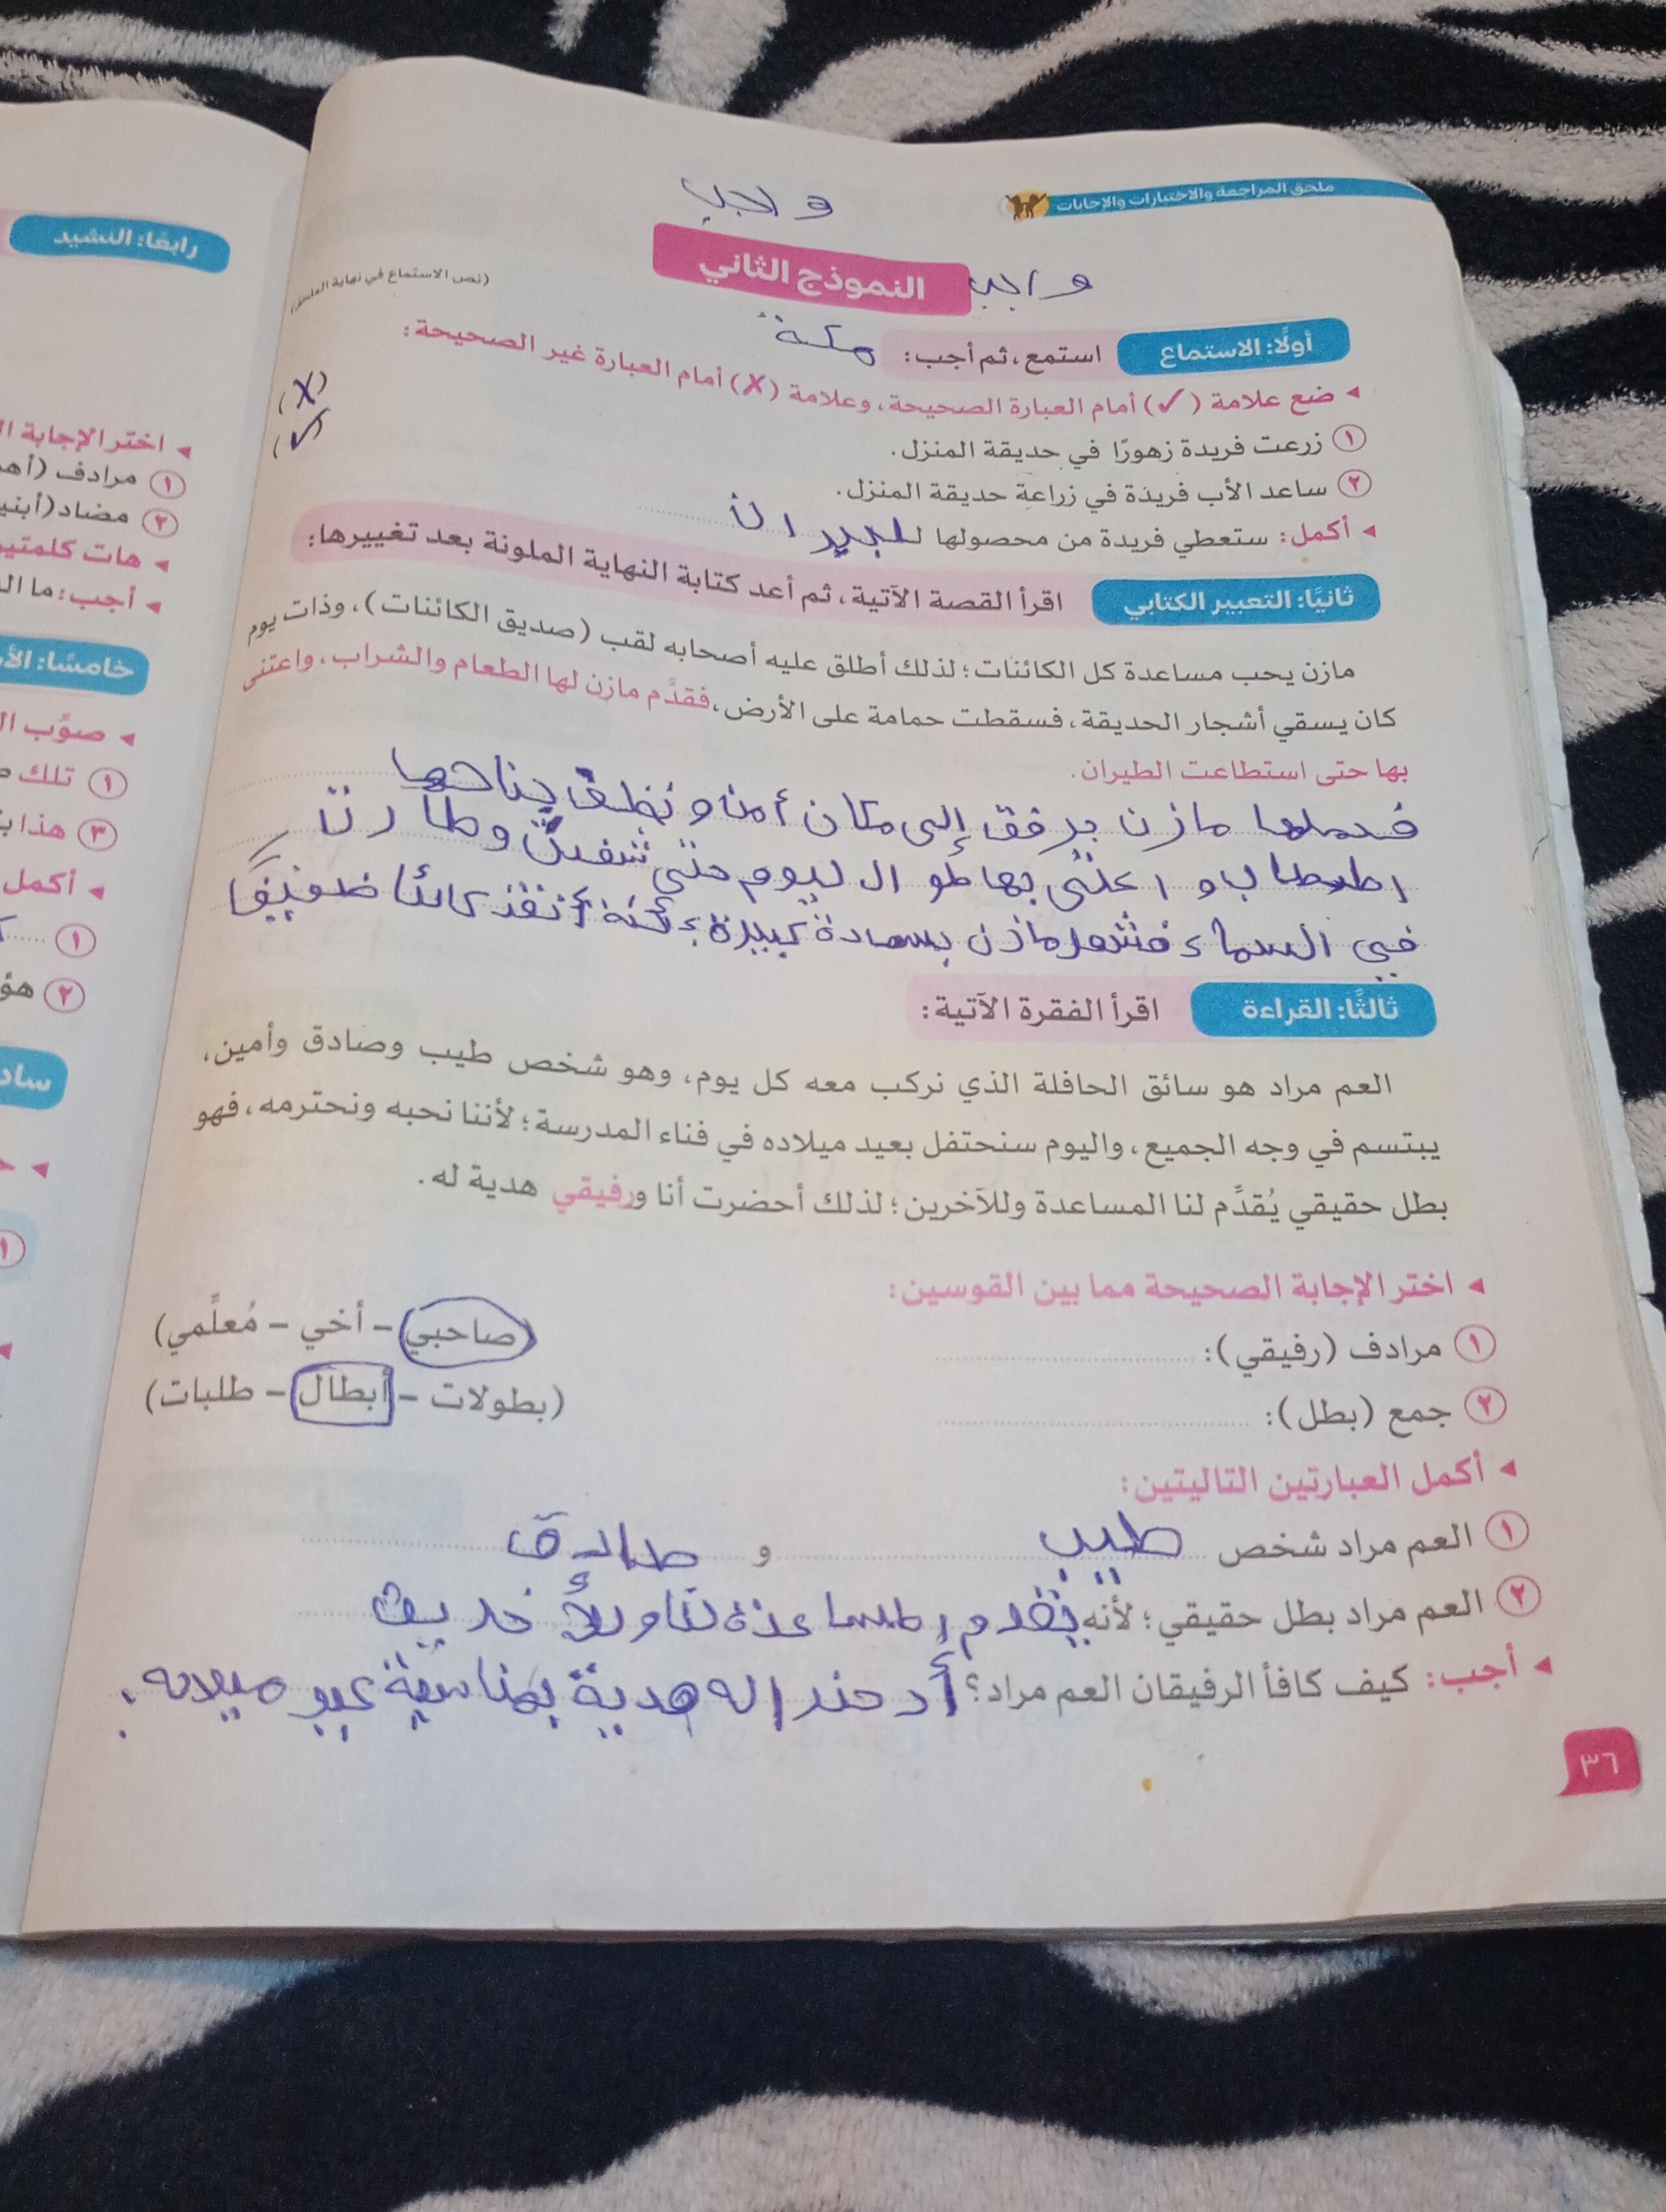 ملحق المراجعة والاختبارات والإجابات
واجب
النموذج الثاني
واجب
(نص الاستماع في نهاية الملحق)
أولًا: الاستماع
استمع، ثم أجب:
◂ ضع علامة (✓) أمام العبارة الصحيحة، وعلامة (✗) أمام العبارة غير الصحيحة:
١ زرعت فريدة زهورًا في حديقة المنزل. (X)
٢ ساعد الأب فريدة في زراعة حديقة المنزل. (✓)
◂ أكمل: ستعطي فريدة من محصولها للجيران
ثانيًا: التعبير الكتابي
اقرأ القصة الآتية، ثم أعد كتابة النهاية الملونة بعد تغييرها:
مازن يحب مساعدة كل الكائنات؛ لذلك أطلق عليه أصحابه لقب (صديق الكائنات)، وذات يوم
كان يسقي أشجار الحديقة، فسقطت حمامة على الأرض، فقدَّم مازن لها الطعام والشراب، واعتنى
بها حتى استطاعت الطيران.
فحملها مازن برفق إلى مكان أمن ونظف جناحها
المصاب واعتنى بها طوال اليوم حتى شفيت وطارت
في السماء فشعر مازن بسعادة كبيرة لأنه أنقذ كائنا ضعيفا
ثالثًا: القراءة
اقرأ الفقرة الآتية:
العم مراد هو سائق الحافلة الذي نركب معه كل يوم، وهو شخص طيب وصادق وأمين،
يبتسم في وجه الجميع، واليوم سنحتفل بعيد ميلاده في فناء المدرسة؛ لأننا نحبه ونحترمه، فهو
بطل حقيقي يُقدِّم لنا المساعدة وللآخرين؛ لذلك أحضرت أنا ورفيقي هدية له.
◂ اختر الإجابة الصحيحة مما بين القوسين:
١ مرادف (رفيقي): (صاحبي – أخي – مُعلِّمي)
٢ جمع (بطل): (بطولات – أبطال – طلبات)
◂ أكمل العبارتين التاليتين:
١ العم مراد شخص طيب و صادق
٢ العم مراد بطل حقيقي؛ لأنه يقدم المساعدة لنا وللأخريت
◂ أجب: كيف كافأ الرفيقان العم مراد؟ أحضرا له هدية بمناسبة عيد ميلاده.
٣٦
رابعًا: النشيد
◂ اختر الإجابة
١ مرادف
٢ مضاد
◂ هات
◂ أجب:
خامسًا:
◂ صوِّب
١ تلك
٣ هذا
◂ أكمل
١
٢